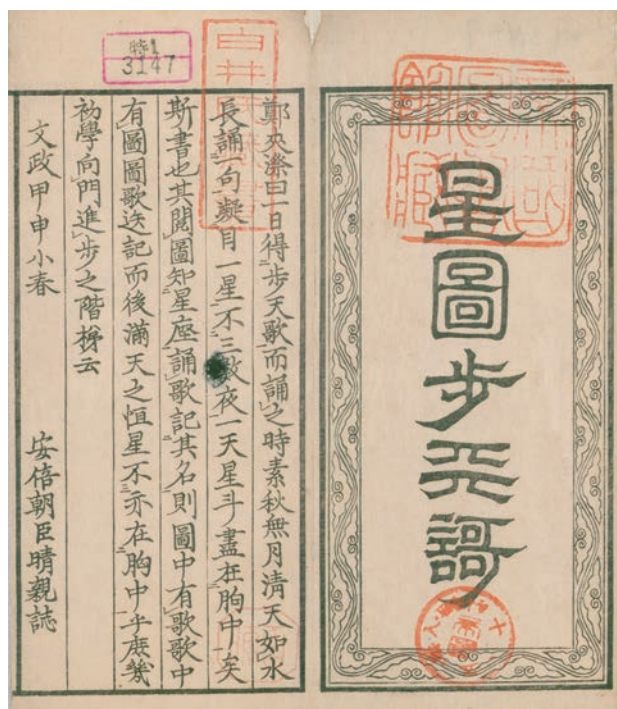 星圖步天謌
帝國圖書館藏
特1
3147
白井氏藏書
鄭央漈曰一日得步天歌而誦之時素秋無月清天如水
長誦一句凝目一星不三數夜一天星斗盡在胸中矣
斯書也其閲圖知星座誦歌記其名則圖中有歌歌中
有圖圖歌迭記而後滿天之恒星不亦在胸中乎庶幾
初學向門進步之階梯云
文政甲申小春 安倍朝臣晴親誌